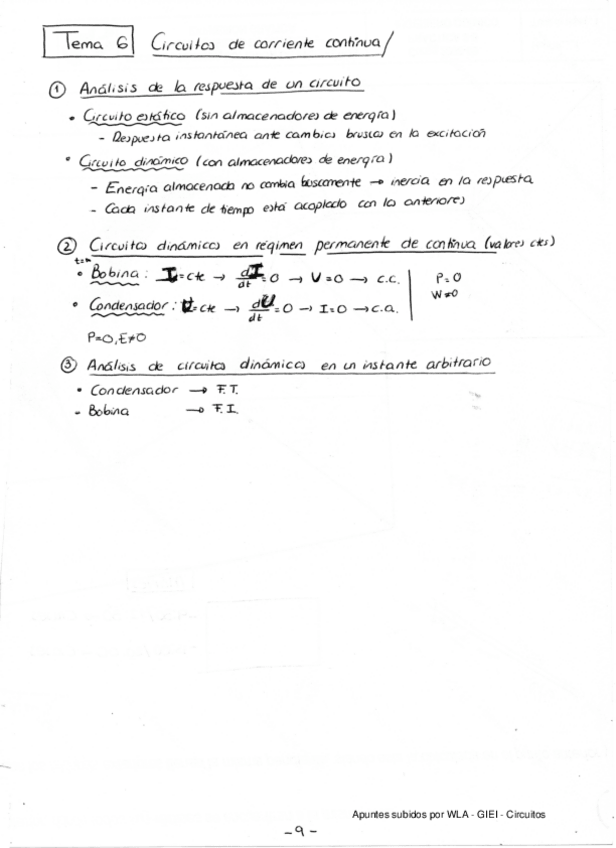 Tema 6 Circuitos de corriente continua/
① Análisis de la respuesta de un circuito
• Circuito estático (sin almacenadores de energía)
- Respuesta instantánea ante cambios bruscos en la excitación
• Circuito dinámico (con almacenadores de energía)
- Energía almacenada no cambia buscamente → inercia en la respuesta
- Cada instante de tiempo está acoplado con la anteriores
② Circuitos dinámicos en régimen permanente de continua (valores ctes)
t=∞
• Bobina: I=cte → dI/dt=0 → U=0 → c.c. | P=0
• Condensador: U=cte → dU/dt=0 → I=0 → c.a. | W≠0
P=0, E≠0
③ Análisis de circuitos dinámicos en un instante arbitrario
• Condensador → F.T.
- Bobina → F.I.
Apuntes subidos por WLA - GIEI - Circuitos
- 9 -